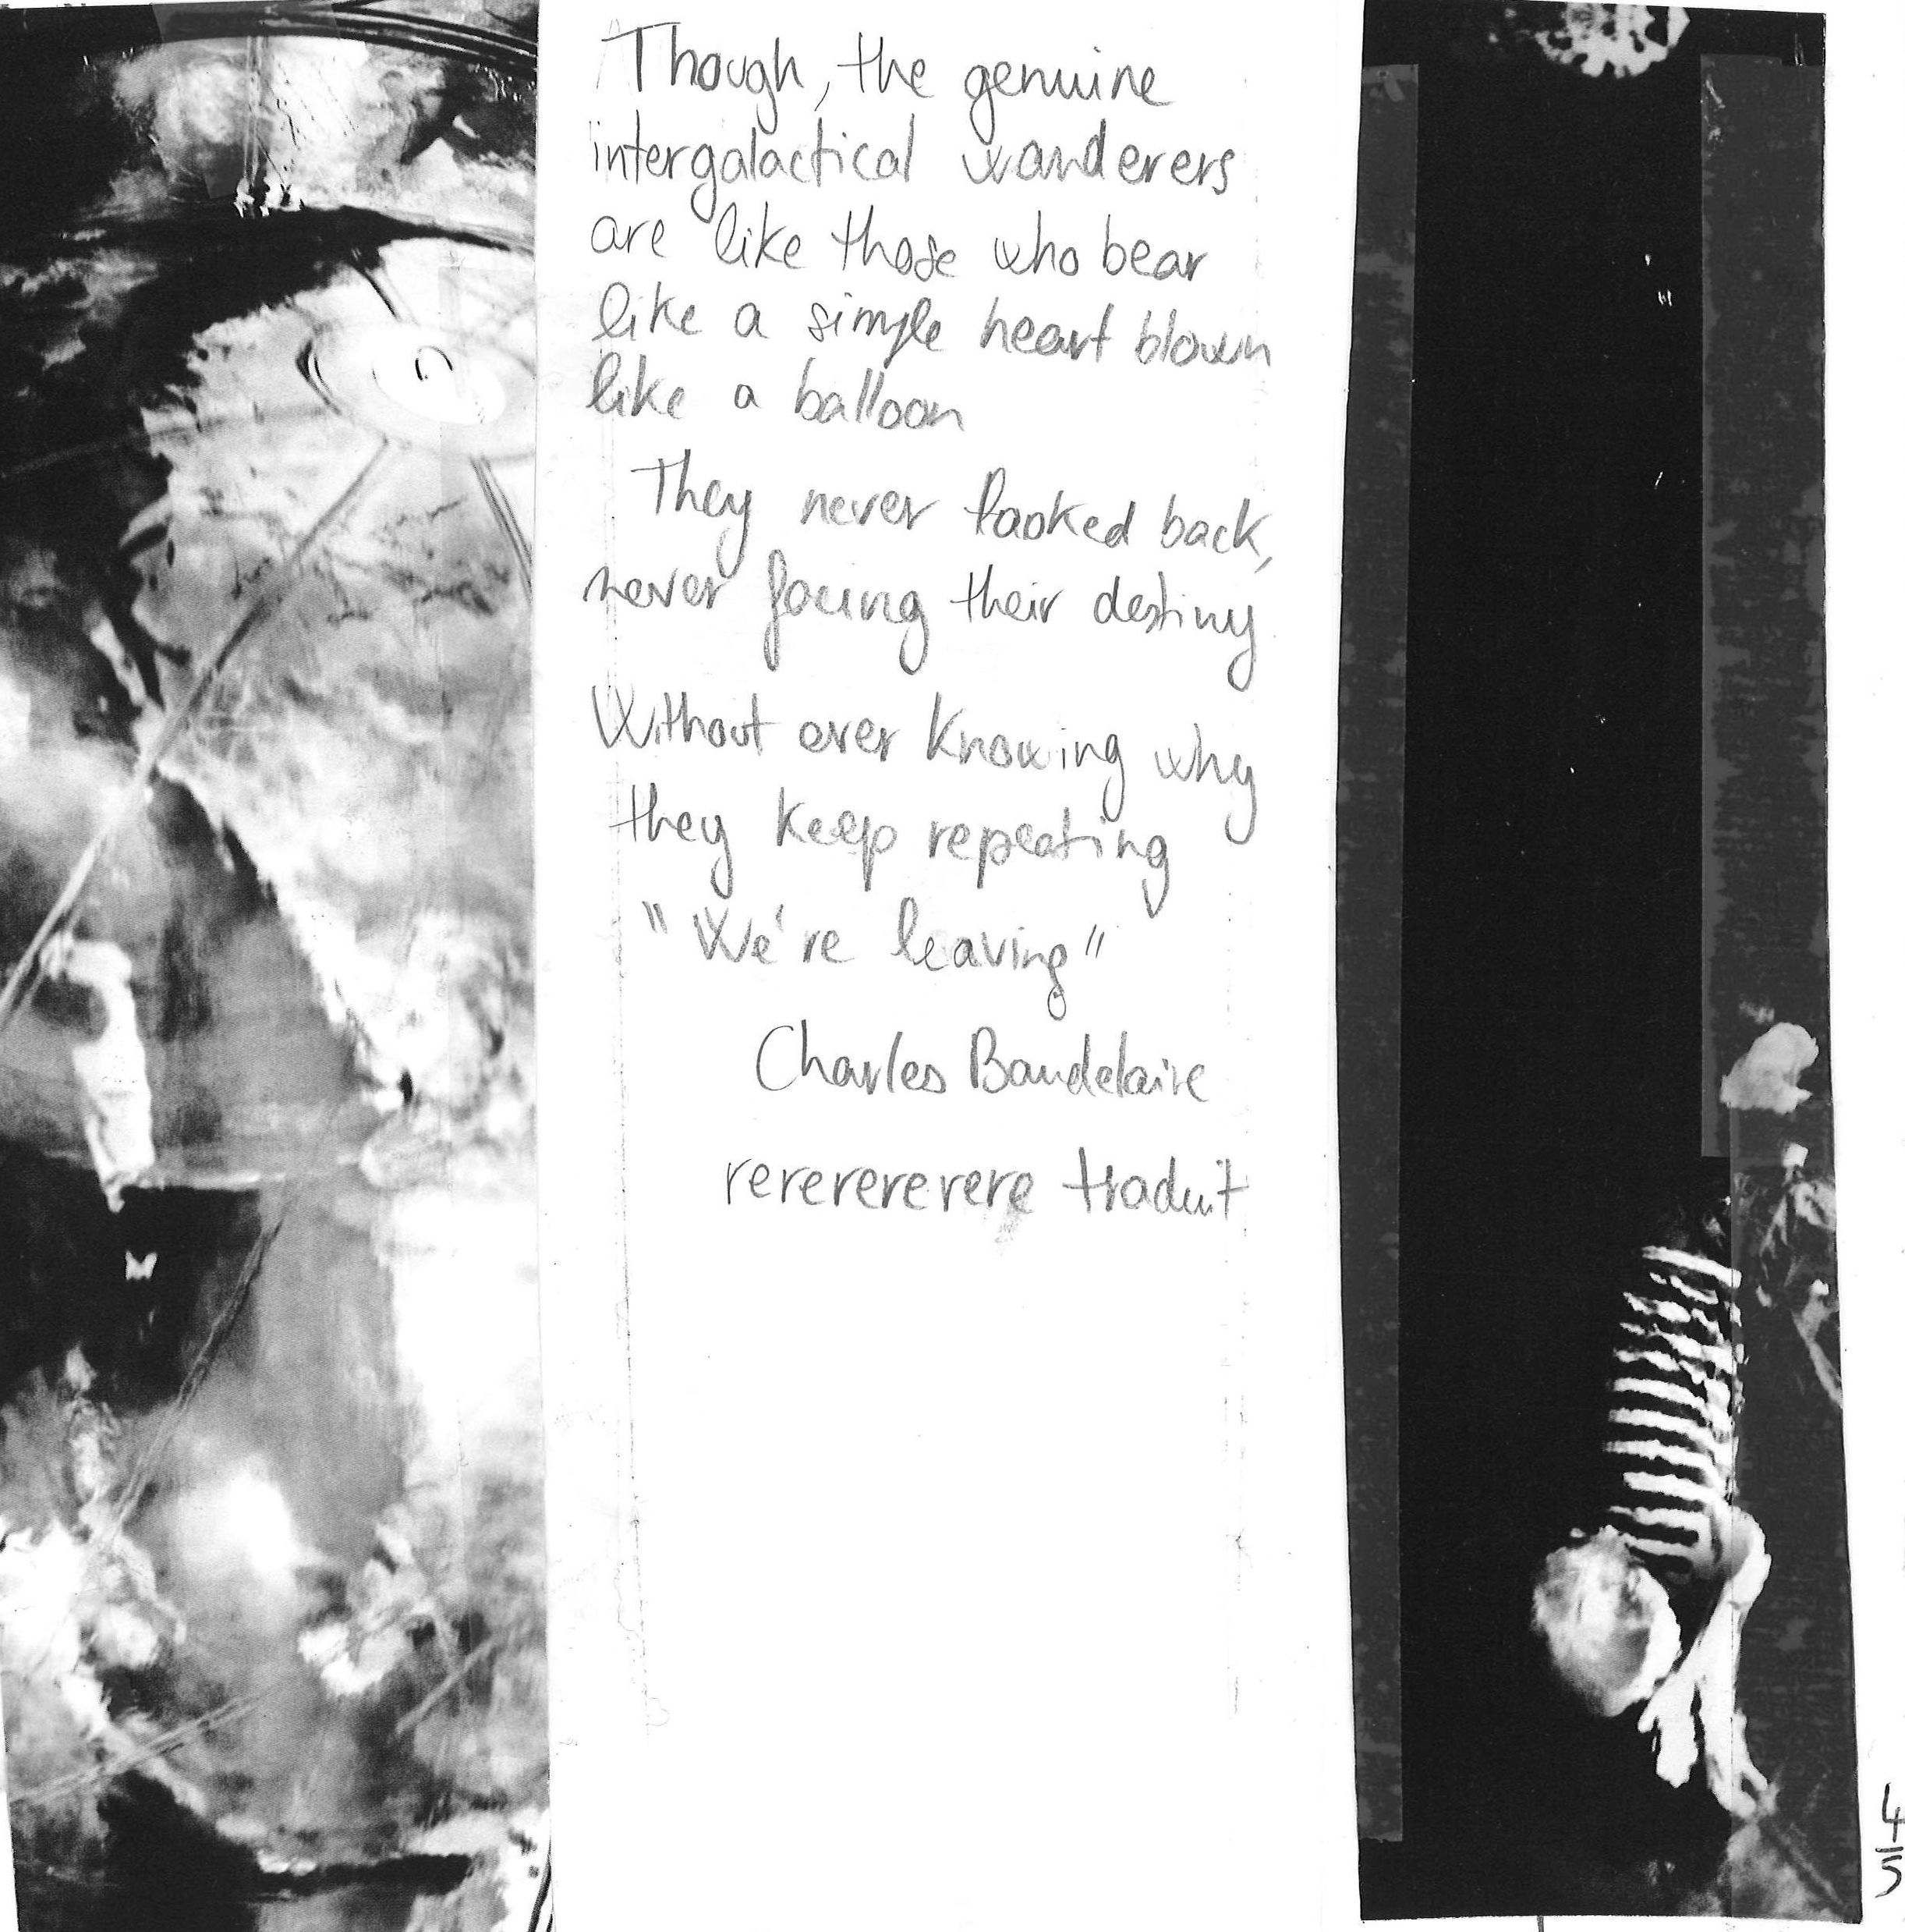 Though, the genuine
intergalactical wanderers
are like those who bear
like a simple heart blown
like a balloon
They never looked back,
never facing their destiny
Without ever knowing why
they keep repeating
"We're leaving"
Charles Baudelaire
rererererere traduit
4/5